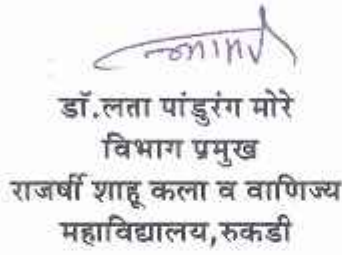 डॉ.लता पांडुरंग मोरे
विभाग प्रमुख
राजर्षी शाहू कला व वाणिज्य
महाविद्यालय,रुकडी